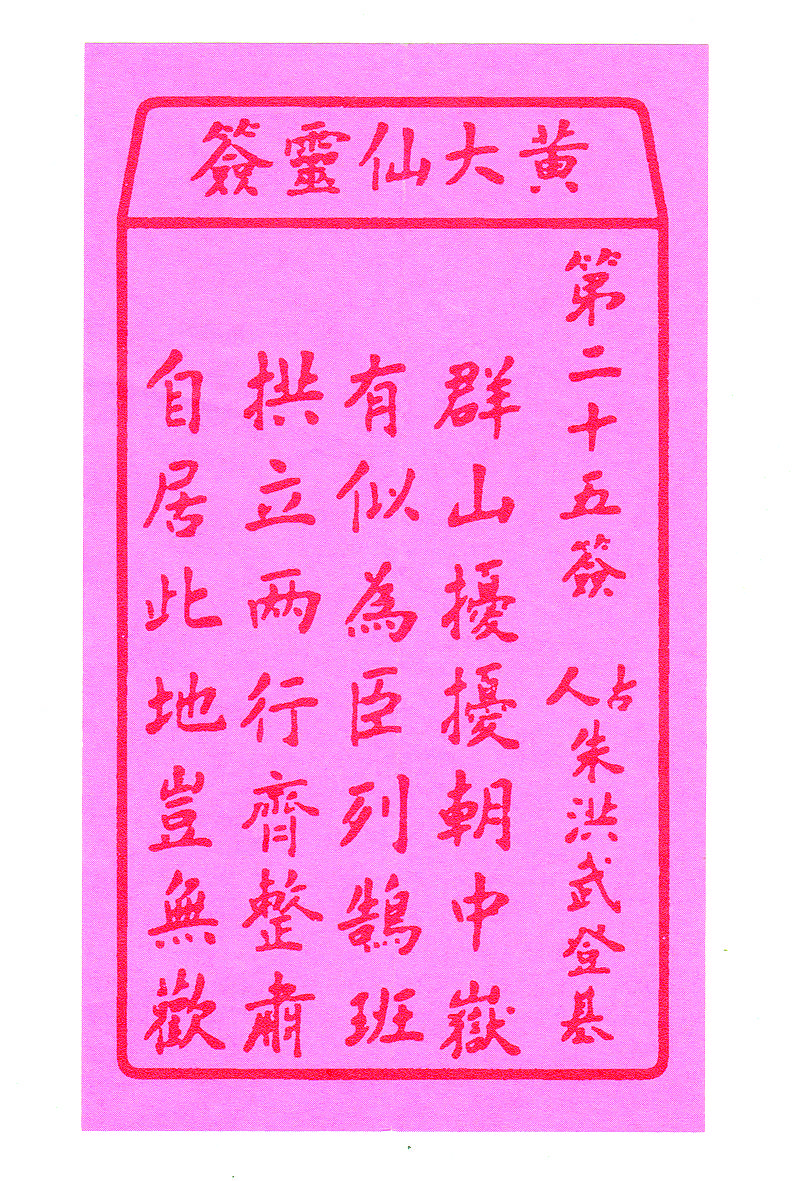 黃大仙靈簽
第二十五簽 占人朱洪武登基
群山擾擾朝中嶽
有似為臣列鵠班
拱立两行齊整肅
自居此地豈無歡